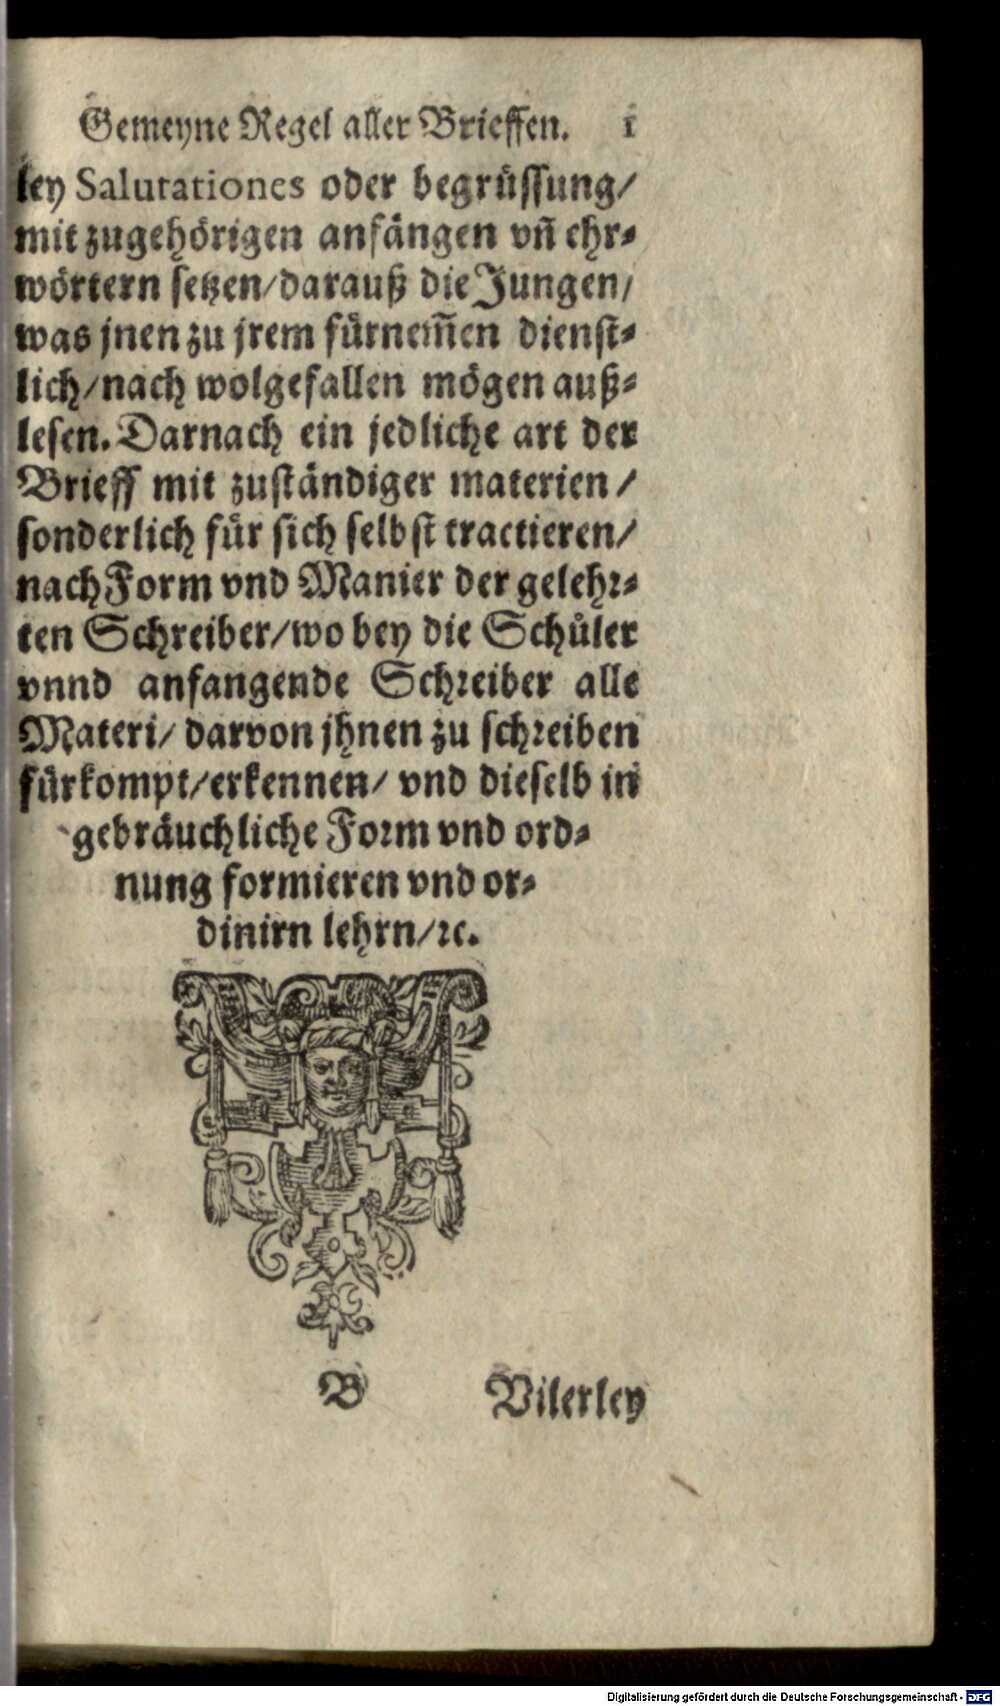 Gemeyne Regel aller Brieffen. 1
ley Salutationes oder begrüssung/
mit zugehörigen anfängen vñ ehr-
wörtern setzen/darauß die Jungen/
was jnen zu jrem fürnem̃en dienst-
lich/nach wolgefallen mögen auß-
lesen. Darnach ein jedliche art der
Brieff mit zuständiger materien/
sonderlich für sich selbst tractieren/
nach Form vnd Manier der gelehr-
ten Schreiber/wo bey die Schůler
vnnd anfangende Schreiber alle
Materi/ darvon jhnen zu schreiben
fürkompt/erkennen/ vnd dieselb in
gebräuchliche Form vnd ord-
nung formieren vnd or-
dinirn lehrn/ꝛc.
B Vilerley
Digitalisierung gefördert durch die Deutsche Forschungsgemeinschaft - DFG